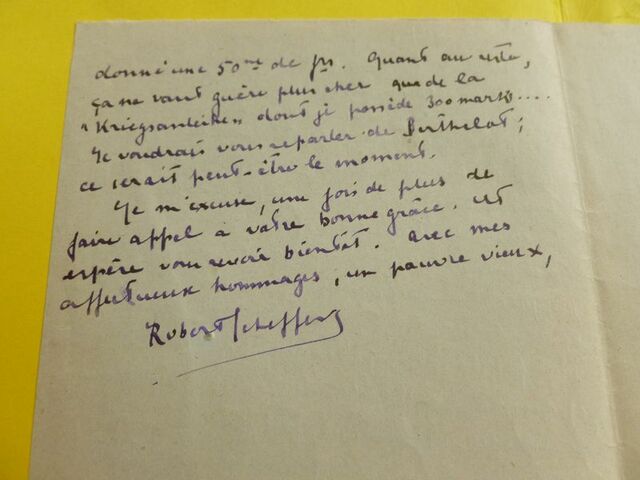 donné une 50ne de frs. Quant au reste,
ça ne vaut guère plus cher que de la
"Kriegsanleihe" dont je possède 300 marks....
Je voudrais vous reparler de Berthelot ;
ce serait peut-être le moment.
Je m'excuse, une fois de plus de
faire appel à votre bonne grâce, et
espère vous revoir bientôt. Avec mes
affectueux hommages, un pauvre vieux,
Robert Scheffer